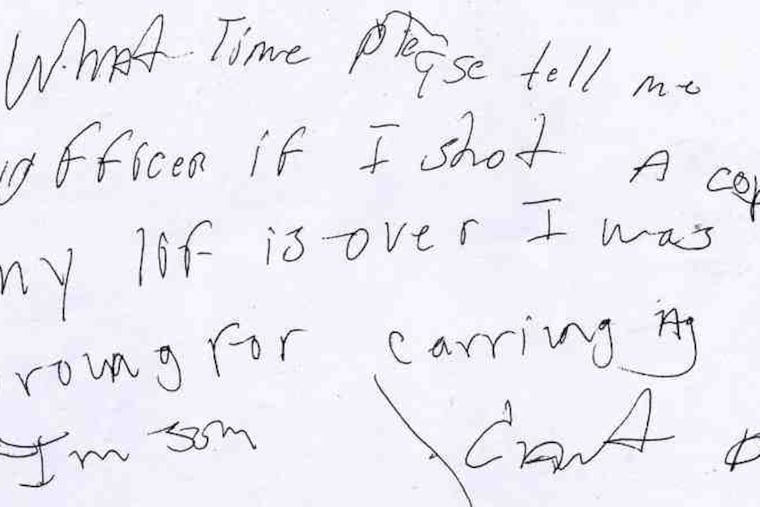 What Time please tell me
officer if I shot A cop
my lif is over I was
roung for carriing Ag
Im som Cant